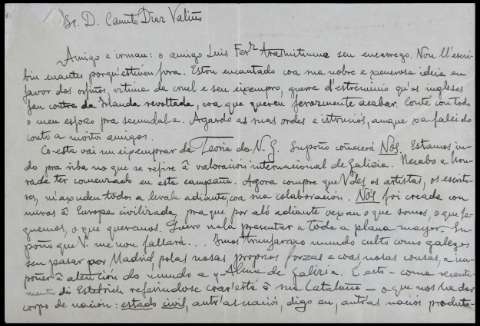 Sr. D. Camilo Díaz Valiño
Amigo e irmau: o amigo Luis Ferz trasmitiume seu encarrego. Non ll'escri-
bin enantes porqu'estiven fora. Estou encantado coa sua nobre e xenerosa ideia en
favor dos orfos, vítima da cruel e sen exempro, guerra d'esterminio qu'os ingleses
fan contra da Irlanda revoltada, coa que queren ferozmente acabar. Conte con todo
o meu esforzo pra secundala. Agardo as suas ordes e istrucións, anque xa falei do
conto a moitos amigos.
Co esta vai un eixemprar da Teoría do N. G. Supoño coñecerá Nós. Estamos in-
do pra riba no que se refire â valoración internacional de Galicia. Nécabo e hon-
rada ter comenzado eu esta campaña. Agora compre que Vdes os artistas, os escrito-
res, axuden todos a levala adiante, coa sua colaboración. Nós foi creada con
miras â Europa civilizada, pra que por alô adiante vexan o que somos, o que fa-
guemos, o que queremos. Quero nela presentar a toda a plana mayor. Su-
poño que V. me non fallará... Imos trunfar no mundo culto como galegos
sen pasar por Madrid polas nosas proprias forzas e coas nosas cousas, e im-
poñer â atención do mundo a y-alma de Galicia. E arte - como recente-
mente di Estelrich refírindose cras'esté â sua Cataluña - o que nos ha dar
corpo de nación: estado civil, ant'as nació, digo eu, ant'as nacios produto-